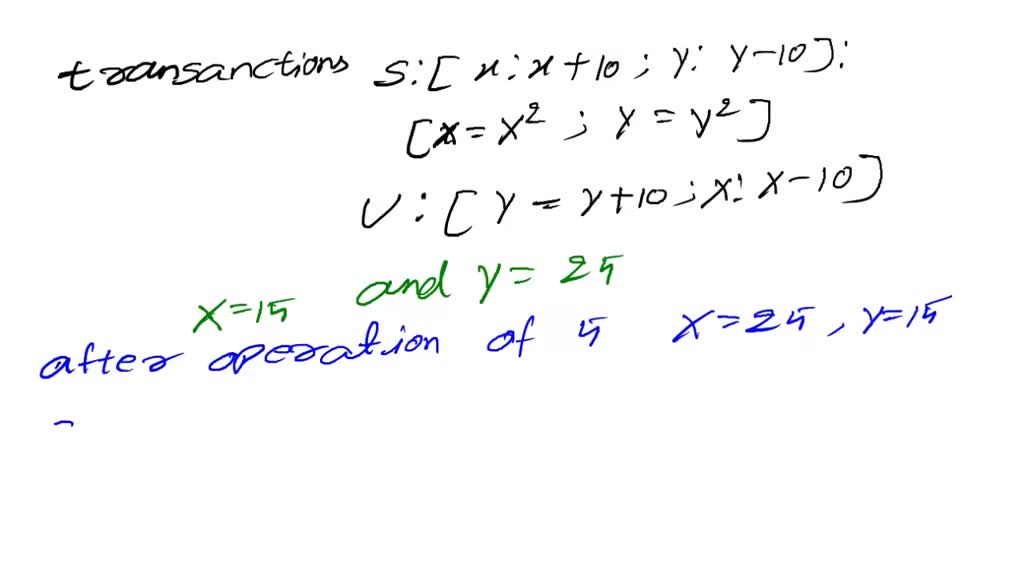 transanctions S:[ x:x+10 ; y: y-10]:
[x=x² ; y=y²]
U:[ y = y+10 ; x: x-10]
x=15 and y=25
after operation of 5 x=25, y=15